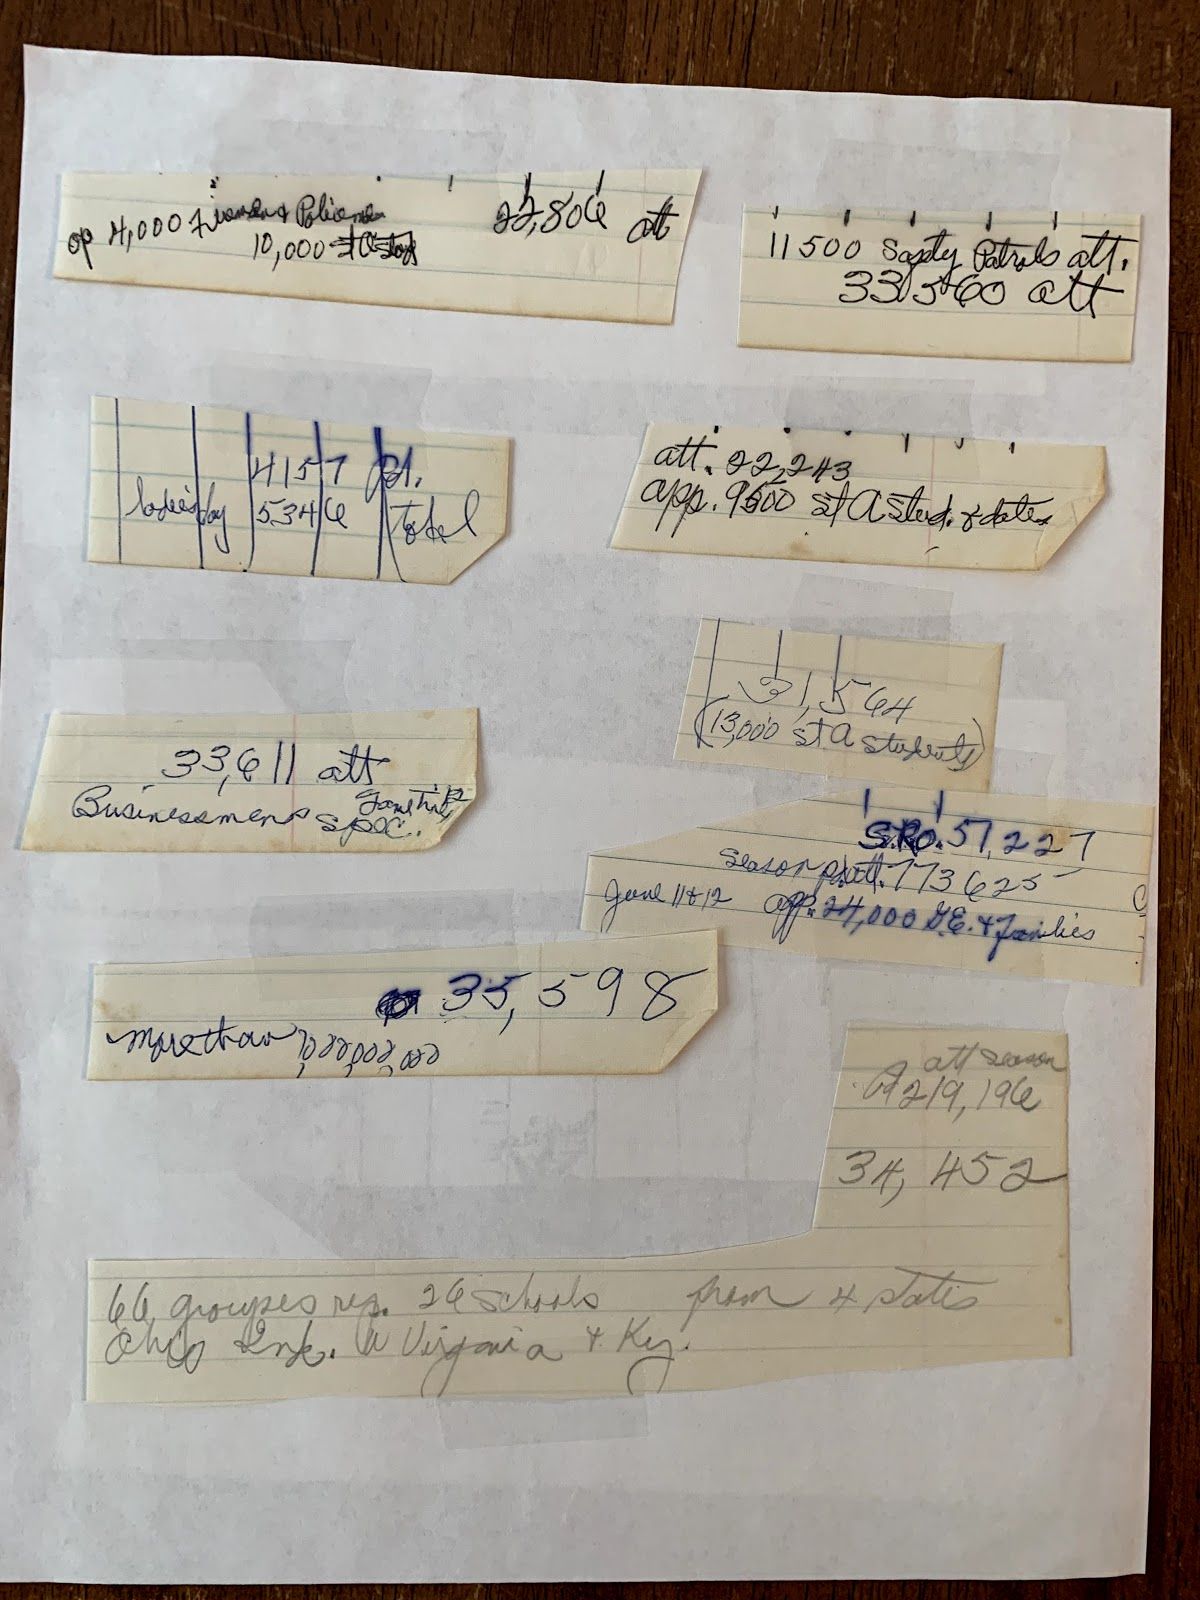 4,000 Firemen & Policemen 22,806 att
op 10,000 st A stud
11500 Safety Patrols att.
33,560 att
4157 pd.
ladies day 5346 total
att. 22,243
app. 9500 st A stud. & dates
31,564
(13,000 st A students)
33,611 att
Businessmens spec.
S.R.O. 57,227
season pd att. 773625
June 11 & 12 app. 24,000 G.E. & Families
35,598
more than
att season
219,196
34,452
66 groups rep. 26 schools from 4 states
Ohio Ind. W Virginia & Ky.